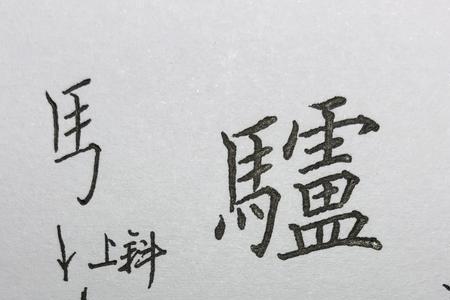 馬 驢
上斜